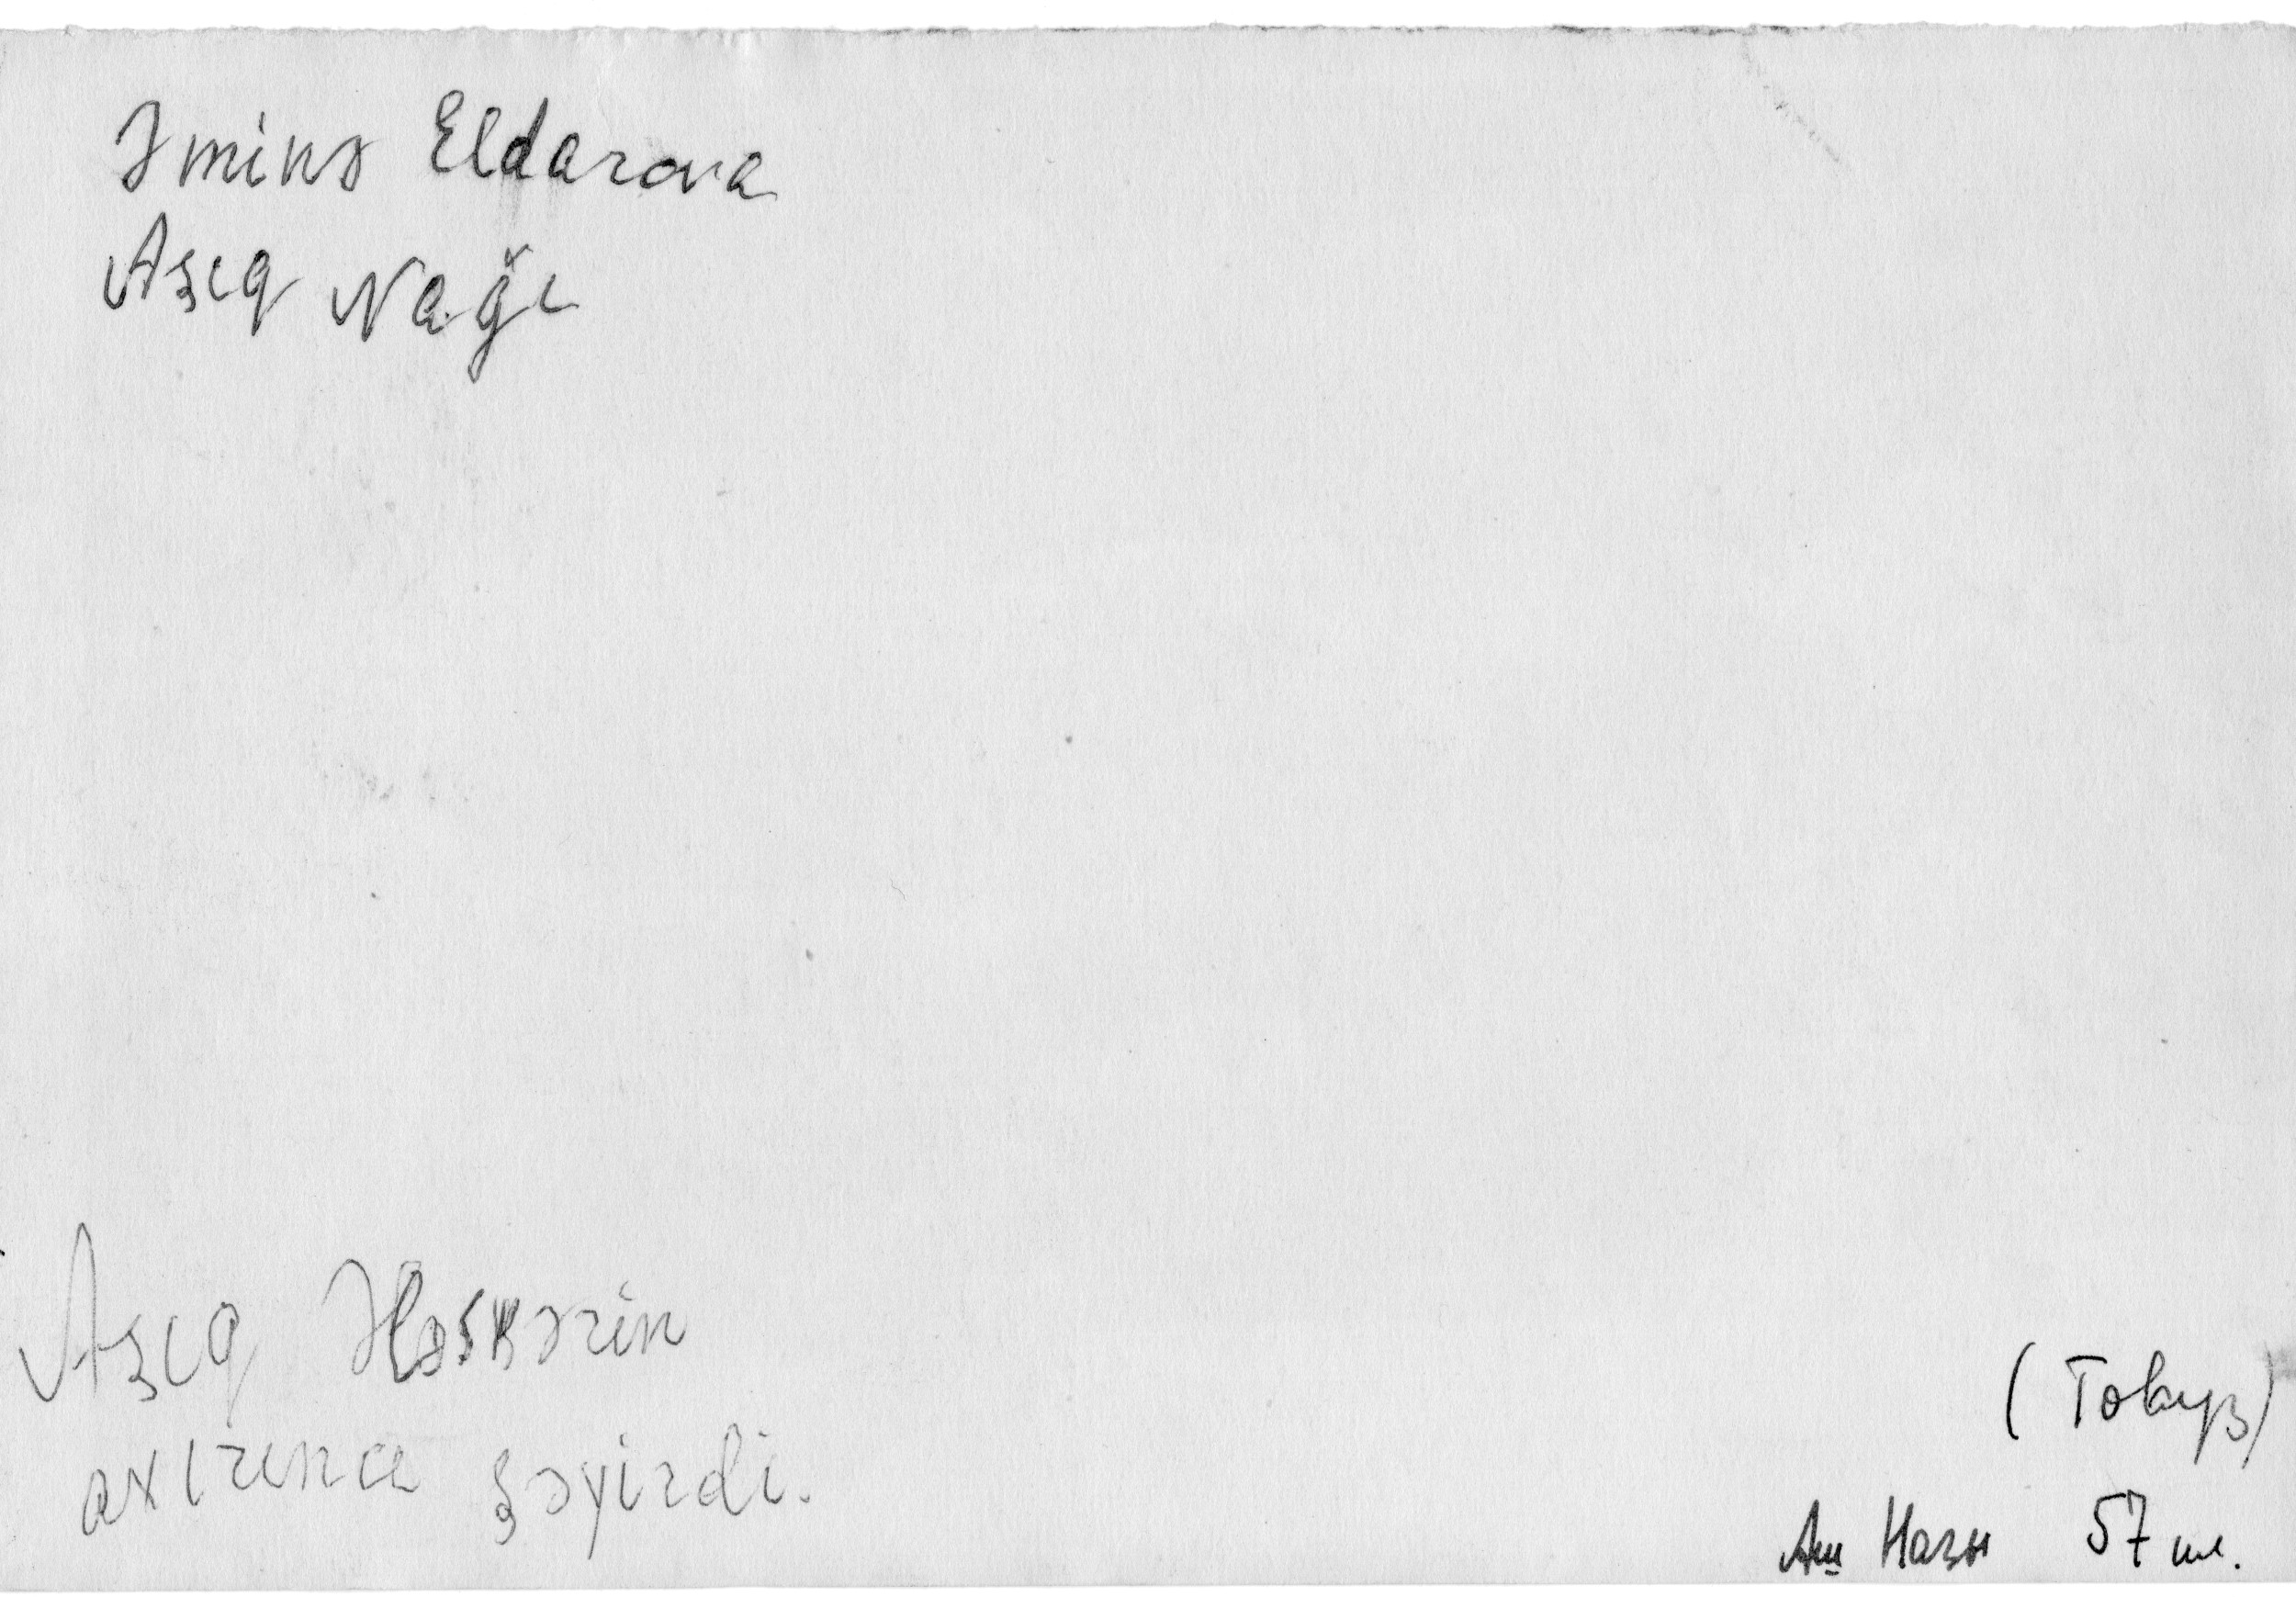 Əminə Eldarova
Aşıq Nağı
Aşıq Ələsgərin
axırıncı şəyirdi.
(Товуз)
Аш Нағы 57 ил.